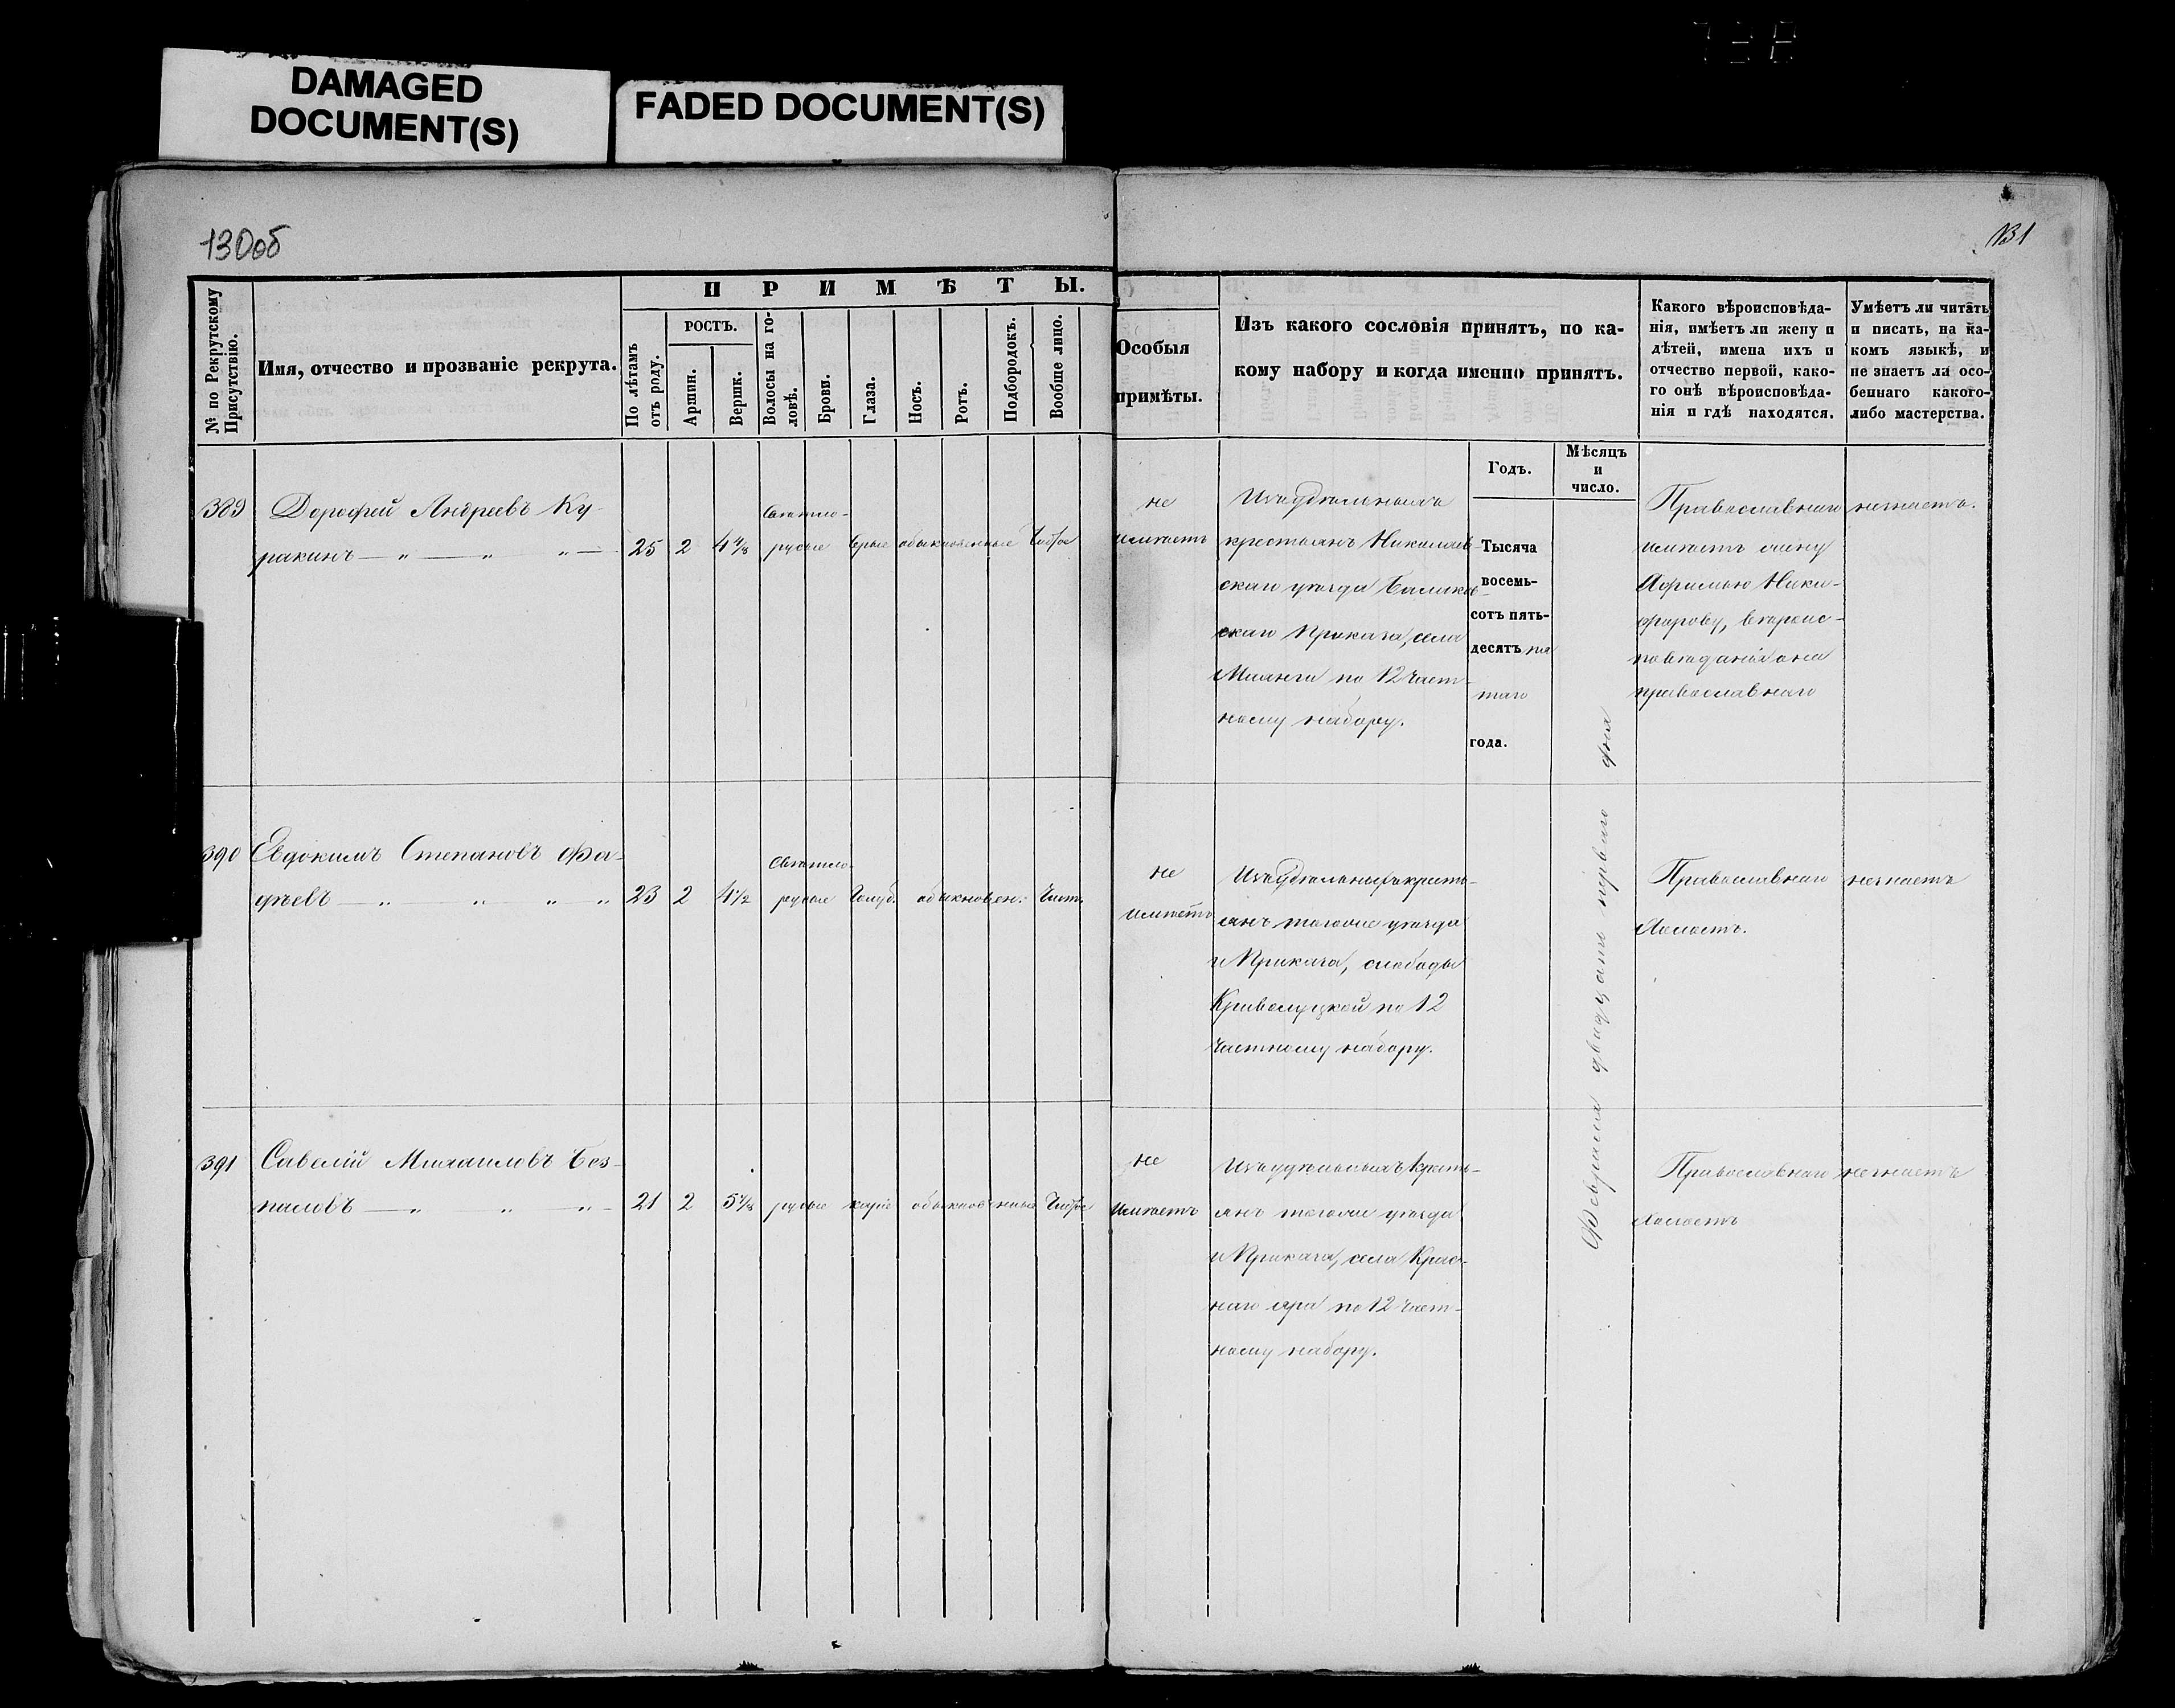 DAMAGED
DOCUMENT(S)
FADED DOCUMENT(S)
130об
131
№ по Рекрутскому
Присутствію.
Имя, отчество и прозваніе рекрута.
ПРИМѢТЫ.
По лѣтамъ
отъ роду.
РОСТЪ.
Аршин.
Вершк.
Волосы на го-
ловѣ.
Брови.
Глаза.
Носъ.
Ротъ.
Подбородокъ.
Вообще лицо.
Особыя
примѣты.
Изъ какого сословія принятъ, по ка-
кому набору и когда именно принятъ.
Годъ.
Мѣсяцъ
и
число.
Какого вѣроисповѣда-
нія, имѣетъ ли жену и
дѣтей, имена ихъ и
отчество первой, како-
го онѣ вѣроисповѣда-
нія и гдѣ находятся.
Умѣетъ ли читать
и писать, на ка-
комъ языкѣ, и
не знаетъ ли осо-
беннаго какого-
либо мастерства.
389
Дорофей Андреевъ Ку-
ракинъ — „ — „ „ —
25 2 4 4/8
Свѣтло-
русые сѣрые обыкновенные чистое
не
имѣетъ
Изъ удѣльныхъ
крестьянъ Николаев-
скаго уѣзда Балаков-
скаго Приказа, села
Маянги по 12 част-
ному набору.
Тысяча
восемь-
сотъ пять-
десятъ пя
таго
года.
Февраля двадцать перваго дня
Православнаго
имѣетъ жену
Афимью Ники-
форову, вѣроис-
повѣданія она
православнаго
незнаетъ.
390
Евдокимъ Степановъ Фа-
дѣевъ — „ — „ „ „
23 2 4 1/2
Свѣтло-
русые голуб. обыкновен: чист.
не
имѣетъ
Изъ удѣльныхъ крестъ-
янъ тогоже уѣзда
и Приказа, слободы
Криволуцкой по 12
частному набору.
Православнаго
Холостъ.
незнаетъ
391
Савелій Михаиловъ Без-
паловъ — „ „ „ -
21 2 5 4/8 русые каріе обыкновенные чистое
не
имѣетъ
Изъ удѣльныхъ кресть-
янъ тогоже уѣзда
и Приказа, села Крас-
наго яра по 12 част-
ному набору.
Православнаго
Холостъ
незнаетъ